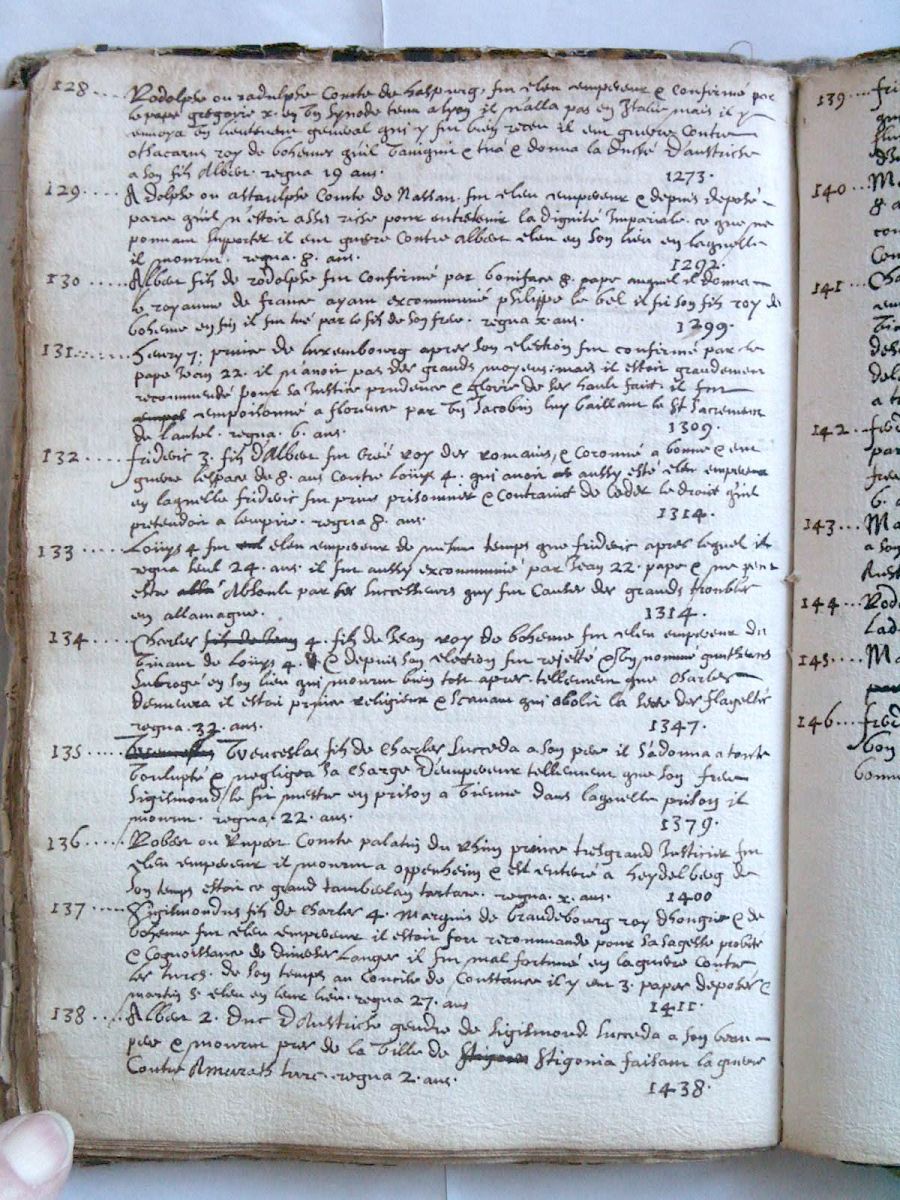 128.... Rodolphe ou radulphe Comte de haspurg, fut eleu empereur & confirmé par
le pape gregoire x. en un synode tenu a lyon il n'alla pas en Italie mais il y
envoya un lieutenent general qui y fut bien receu il eut guerre Contre
othacarus roy de bohemes qu'il vainquit & tua & donna la duché d'austriche
a son fils Albert. regna 19 ans. 1273.
129.... Adolphe ou astaulphe Comte de Nassau. fut eleu empereur & depuis deposé
parce qu'il n'estoit asses riche pour entretenir la dignité Imperiale. ce que ne
pouvant suporter il eut guerre Contre albert eleu en son lieu en laquelle
il mourut. regna. 8. ans. 1292.
130.... Albert fils de rodolphe fut Confirmé par boniface 8. pape auquel il donna
le royaume de france ayant excommunié philippe le bel il fit son fils roy de
boheme en fin il fut tué par le fils de son frere. regna x. ans. 1299.
131..... henry 7. prince de luxembourg apres son election fut confirmé par le
pape Jean 22. il n'avoit pas des grands moyens mais il estoit grandement
recommendé pour sa Justice prudence & gloire de ses hault fait. il fut
empoisonné a florence par un Jacobin luy baillant le St Sacrement
de l'autel. regna. 6. ans. 1309.
132..... frideric 3. fils d'Albert fut Creé roy des romains, & coroné a bonne & eut
guerre l'espace de 8. ans Contre Loüys 4. qui avoit aussy esté eleu empereur
en laquelle frideric fut prins prisonnier & Contraint de Ceder le droit qu'il
pretendoit a l'empire. regna 8. ans. 1314.
133..... Loüys 4 fut eleu empereur de mesme temps que frideric apres lequel il
regna seul 24. ans. il fut aussy excommunié par Jean 22. pape & ne peut
estre Absoult par ses successeurs quy fut Cause des grands troubles
en allamagne. 1314.
134.... Charles fils de Jean 4. fils de Jean roy de boheme fut eleu empereur du
vivant de Loüys 4. & depuis son election fut rejetté & nommé
subrogé en son lieu qui mourut bien tost apres. tellement que Charles
demeura il estoit prince religieux & scavant qui abolit la secte des flagellés
regna. 32. ans. 1347.
135.... Wenceslas Wenceslas fils de Charles succeda a son pere il s'adonna a toute
voulupté & negligea sa Charge d'empereur tellement que son frere
Sigismond le fit mestre en prison a vienne dans laquelle prison il
mourut. regna. 22. ans. 1379.
136..... Robert ou Rupert Comte palatin du Rhin prince tresgrand Justicier fut
eleu empereur il mourut a oppenheim & est enterré a heydelberg de
son temps estoit ce grand tamberlan tartare. regna. x. ans. 1400
137.... Sigismondus fils de Charles 4. Marquis de brandebourg roy d'hongrie & de
boheme fut eleu empereur il estoit fort recommandé pour sa sagesse probité
& Cognoissance de diverses langues il fut mal fortuné en la guerre contre
les turcs. de son temps au Concile de Constance il y eut 3. papes deposés &
martin 5 eleu en leur lieu. regna 27. ans 1411.
138.... Albert 2. duc d'Austriche gendre de Sigismond succeda a son beau
pere & mourut pres de la ville de Stigonia faisant la guerre
Contre Amurath turc. regna 2. ans. 1438.
139...
140...
141...
142...
143...
144...
145....
146...